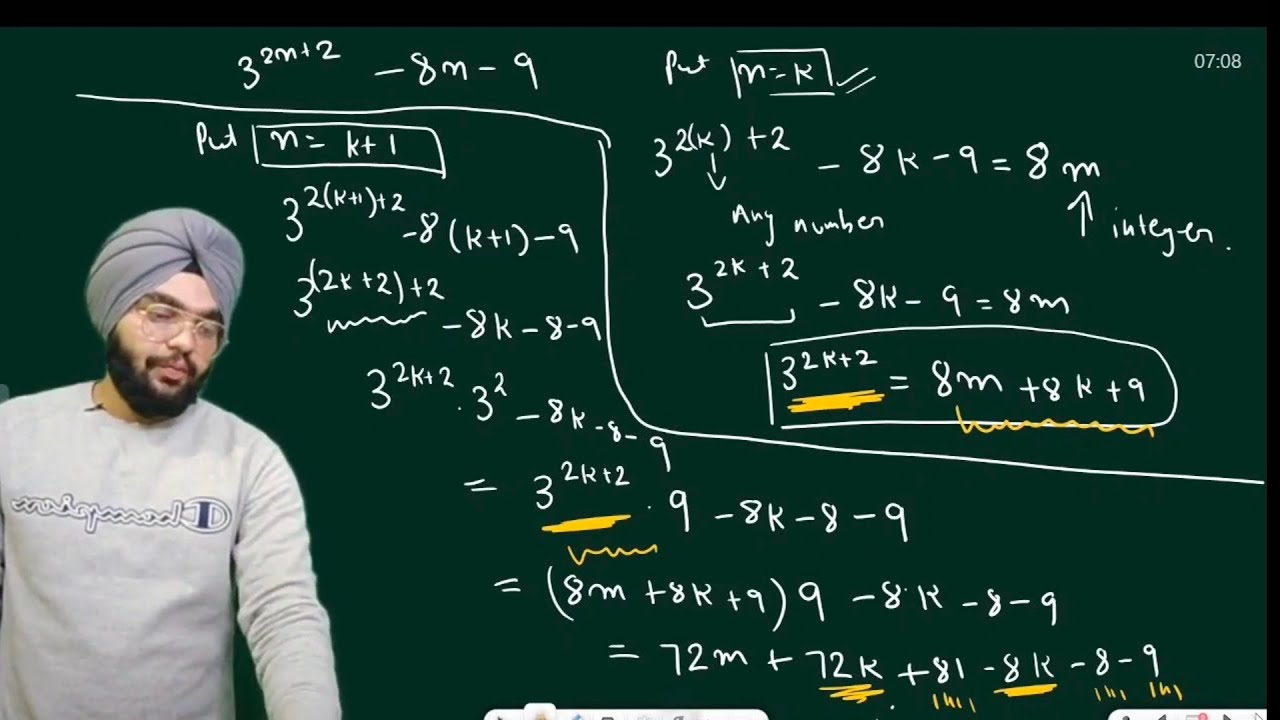 3^{2n+2} - 8n - 9
07:08
Put n = k+1
3^{2(k+1)+2} - 8(k+1) - 9
3^{(2k+2)+2} - 8k - 8 - 9
3^{2k+2} · 3^2 - 8k - 8 - 9
Put n = k
3^{2(k)+2} - 8k - 9 = 8m
Any number
integer.
3^{2k+2} - 8k - 9 = 8m
3^{2k+2} = 8m + 8k + 9
= 3^{2k+2} · 9 - 8k - 8 - 9
= (8m + 8k + 9) 9 - 8k - 8 - 9
= 72m + 72k + 81 - 8k - 8 - 9
Champion